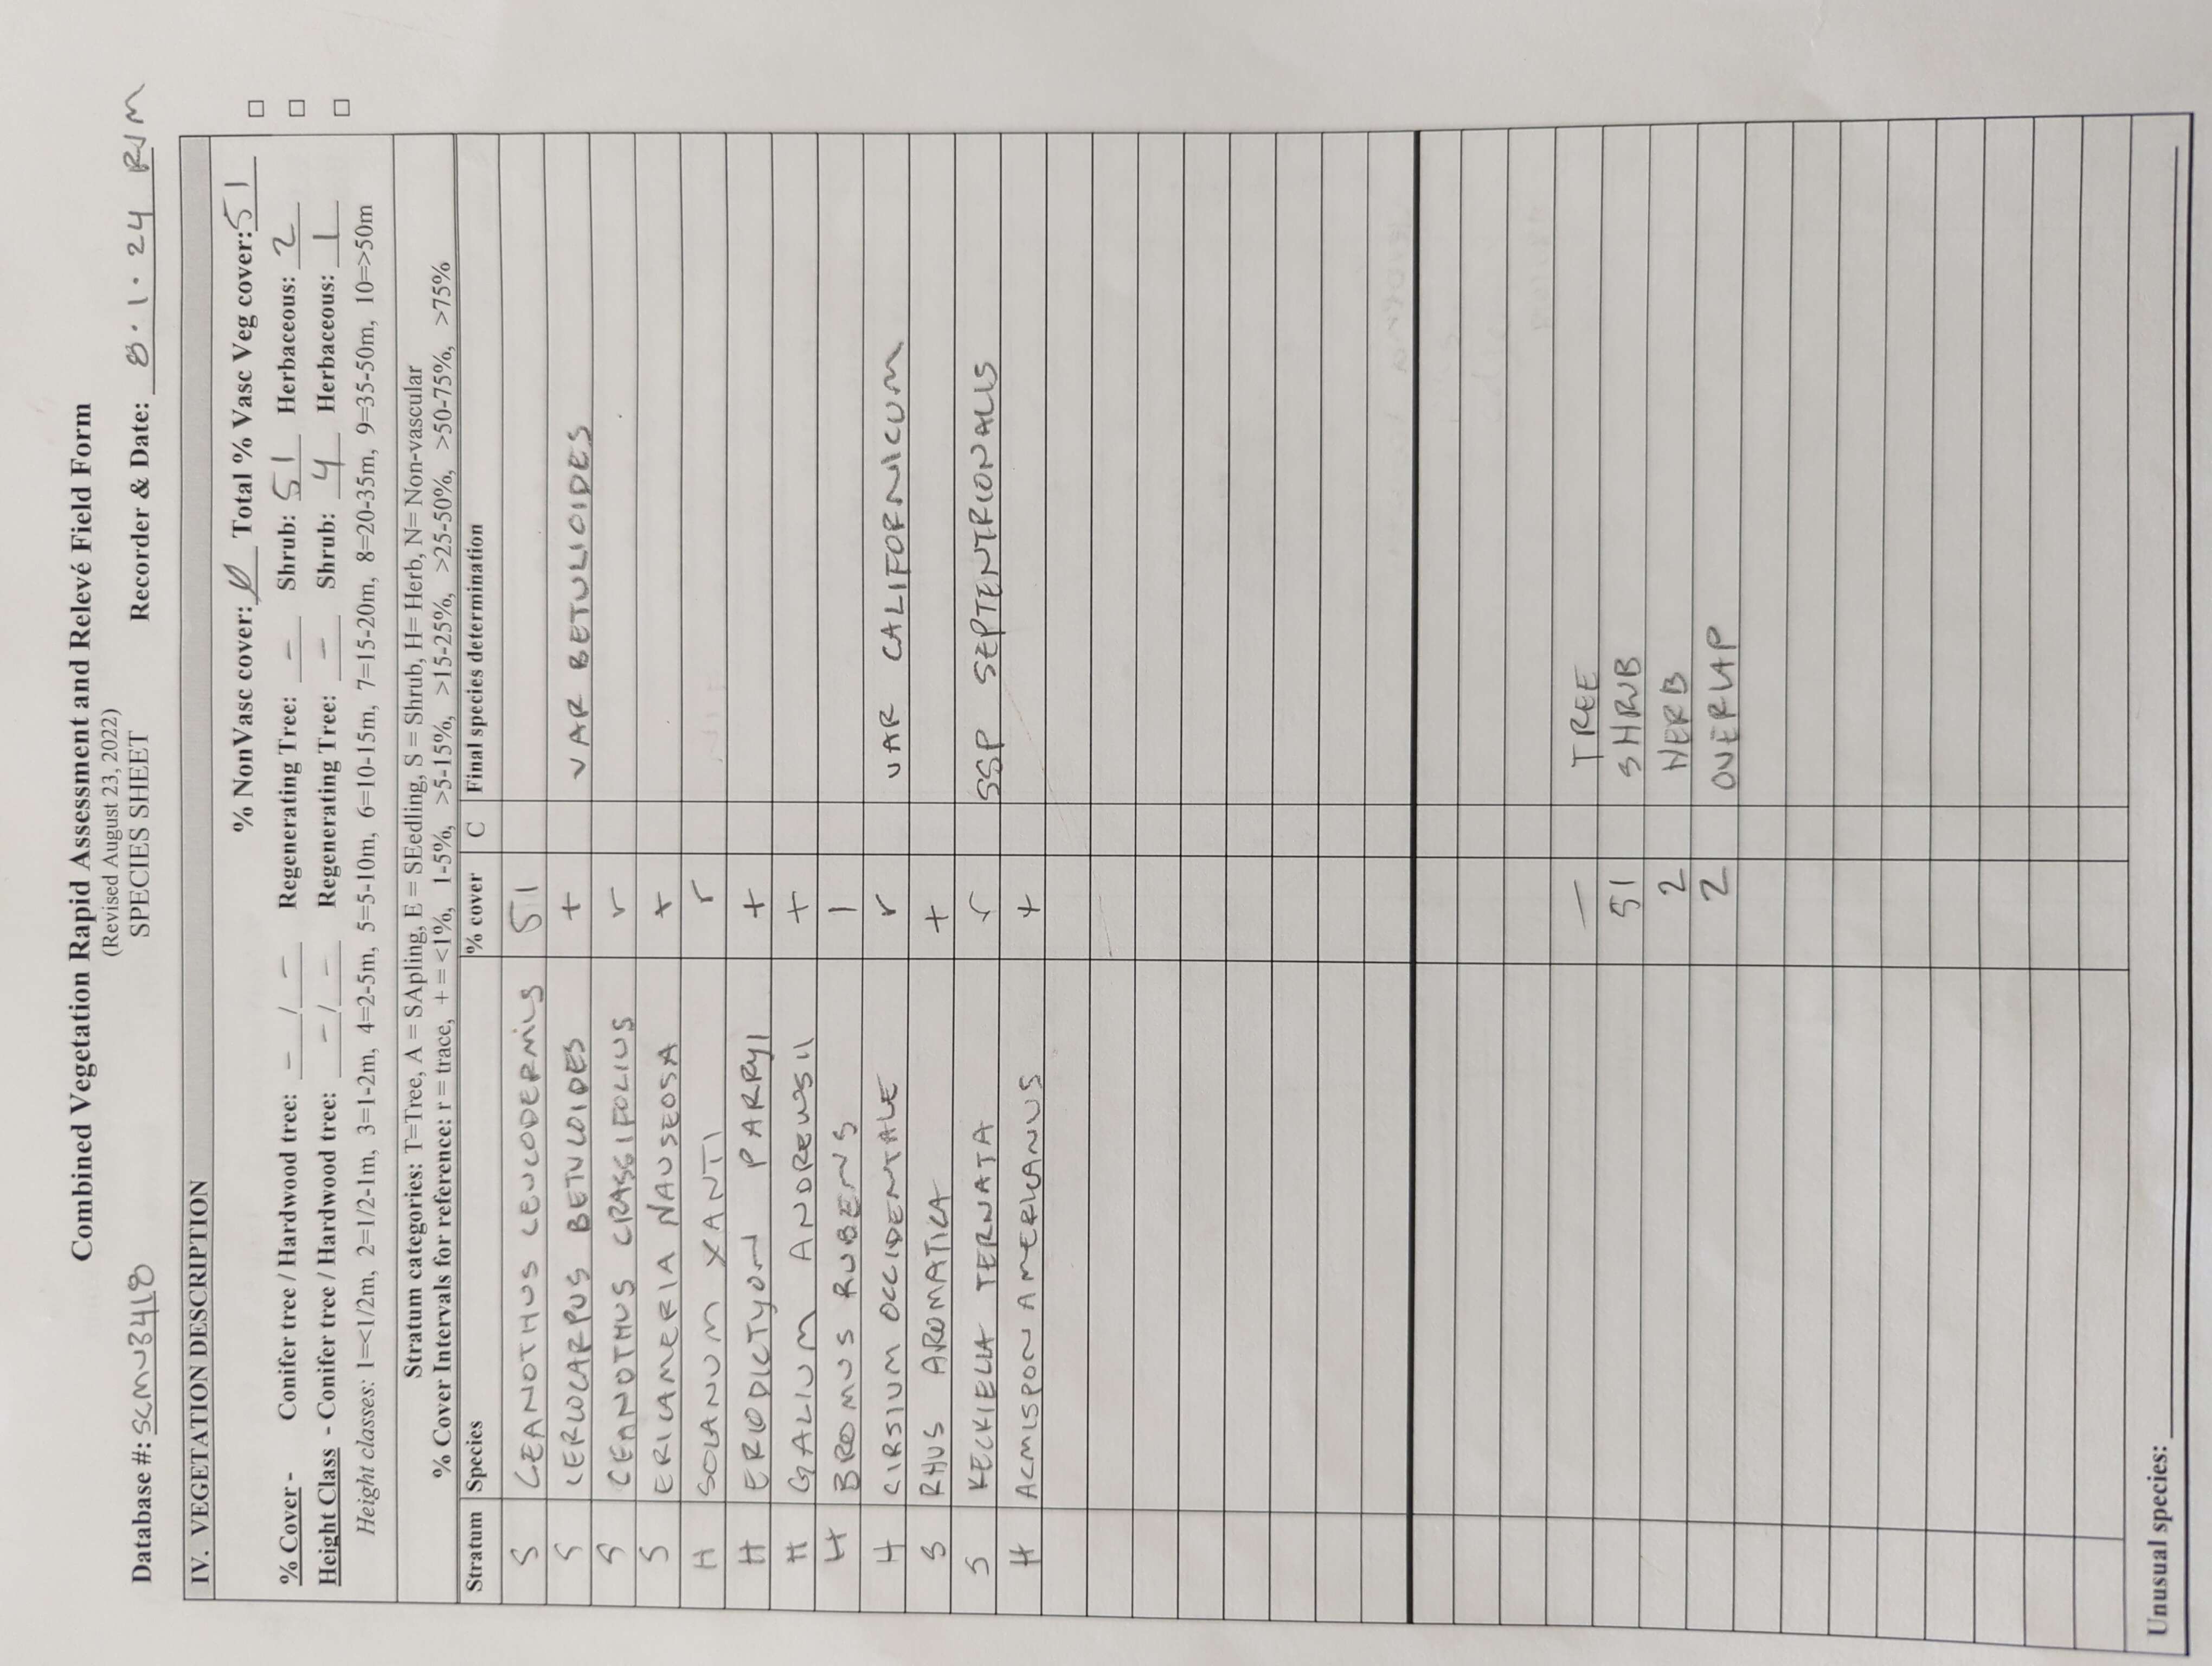 Combined Vegetation Rapid Assessment and Relevé Field Form
(Revised August 23, 2022)
SPECIES SHEET
Database #: SCMN3418 Recorder & Date: 8.1.24 RJM
IV. VEGETATION DESCRIPTION
% NonVasc cover: 0 Total % Vasc Veg cover: 51 □
% Cover - Conifer tree / Hardwood tree: - / - Regenerating Tree: - Shrub: 51 Herbaceous: 2 □
Height Class - Conifer tree / Hardwood tree: - / - Regenerating Tree: - Shrub: 4 Herbaceous: 1 □
Height classes: 1=<1/2m, 2=1/2-1m, 3=1-2m, 4=2-5m, 5=5-10m, 6=10-15m, 7=15-20m, 8=20-35m, 9=35-50m, 10=>50m
Stratum categories: T=Tree, A = SApling, E = SEedling, S = Shrub, H= Herb, N= Non-vascular
% Cover Intervals for reference: r = trace, + = <1%, 1-5%, >5-15%, >15-25%, >25-50%, >50-75%, >75%
Stratum Species % cover C Final species determination
S CEANOTHUS LEUCODERMIS 51
S CERCOCARPUS BETULOIDES + VAR BETULIOIDES
S CEANOTHUS CRASSIFOLIUS r
S ERICAMERIA NAUSEOSA +
H SOLANUM XANTI r
H ERIODICTYON PARRYI +
H GALIUM ANDREWSII +
H BROMUS RUBENS 1
H CIRSIUM OCCIDENTALE r VAR CALIFORNICUM
S RHUS AROMATICA +
S KECKIELLA TERNATA r SSP SEPTENTRIONALIS
H ACMISPON AMERICANUS +
— TREE
51 SHRUB
2 HERB
2 OVERLAP
Unusual species: